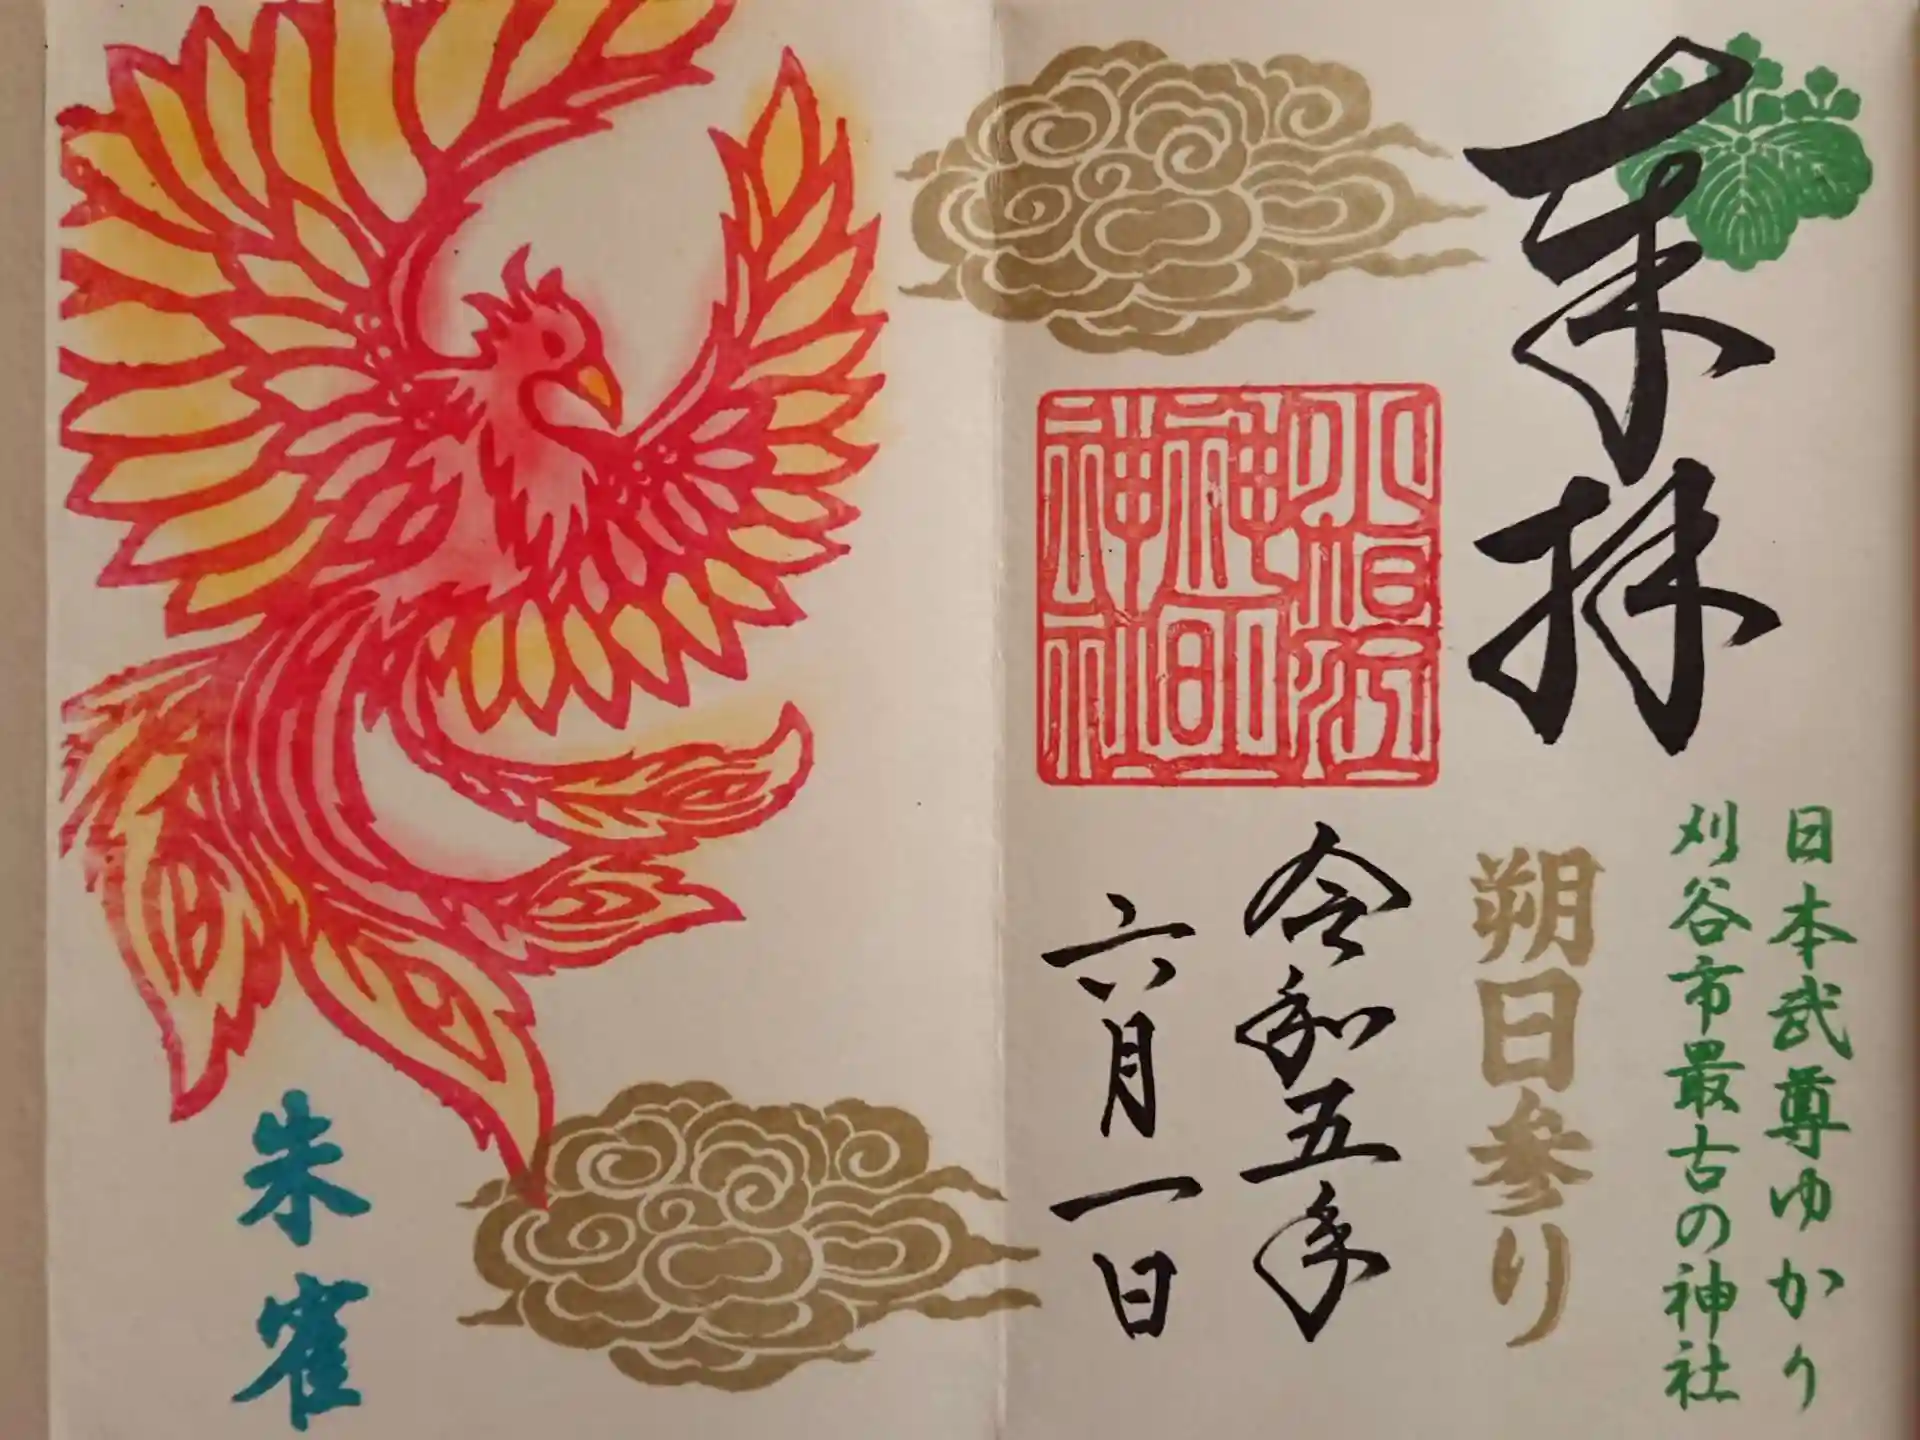 日本武尊ゆかり
刈谷市最古の神社
奉拝
朔日参り
小垣江
神明
神社
令和五年
六月一日
朱雀